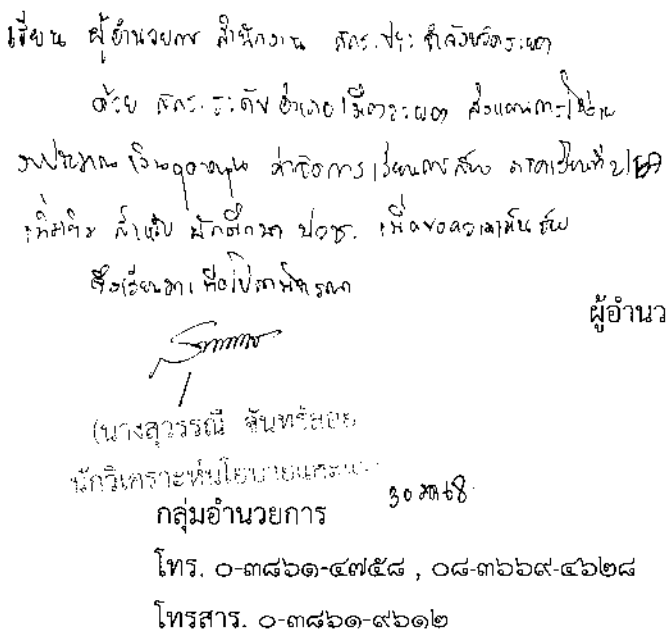 เรียน ผู้อำนวยการ สำนักงาน สกร.ประจำจังหวัดระยอง
ด้วย สกร.ระดับอำเภอเมืองระยอง ส่งแผนการใช้จ่าย
งบประมาณ เงินอุดหนุน ค่าจัดการเรียนการสอน ภาคเรียนที่ ๒/
เพิ่มเติม สำหรับ นักศึกษา ปวช. เพื่อขอความเห็นชอบ
จึงเรียนมาเพื่อโปรดพิจารณา
ผู้อำนว
(นางสุวรรณี จันทร์
นักวิเคราะห์นโยบายและแผน
30 68
กลุ่มอำนวยการ
โทร. ๐-๓๘๖๑-๔๗๕๘ , ๐๘-๓๖๖๙-๔๖๒๘
โทรสาร. ๐-๓๘๖๑-๙๖๑๒